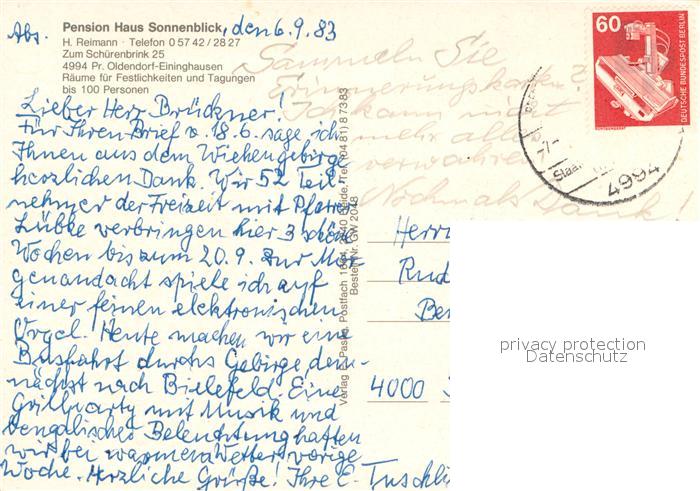 Abs. Pension Haus Sonnenblick, den 6.9.83
H. Reimann · Telefon 0 57 42 / 28 27
Zum Schürenbrink 25
4994 Pr. Oldendorf-Eininghausen
Räume für Festlichkeiten und Tagungen
bis 100 Personen
Lieber Herr Brückner!
Für Ihren Brief v. 18.6. sage ich
Ihnen aus dem Wiehengebirge
herzlichen Dank. Wir 52 Teil
nehmer der Freizeit mit Pfarrer
Lübke verbringen hier 3 schöne
Wochen bis zum 20.9. zur Mor
genandacht spiele ich auf
einer feinen elektronischen
Orgel. Heute machen wir eine
Busfahrt durchs Gebirge dem-
nächst nach Bielefeld. Eine
Grillparty mit Musik und
bengalischer Beleuchtung hatten
wir bei warmem Wetter vorige
Woche. Herzliche Grüße! Ihre E. Tuschli
Sammeln Sie
Erinnerungskarten?
Ich kann nicht
mehr alles
verwahren
Nochmals Dank!
Verlag Postfach Heide, Tel. (04 81) 8 73 83
Bestell-Nr. GW 2048
60
DEUTSCHE BUNDESPOST BERLIN
4994
Herrn
Rud
Be
4000
privacy protection
Datenschutz